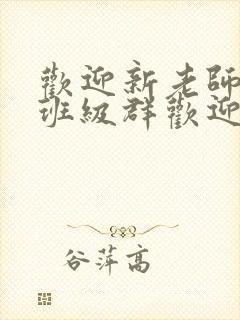 歡迎新老師
班級群歡迎
谷萍高